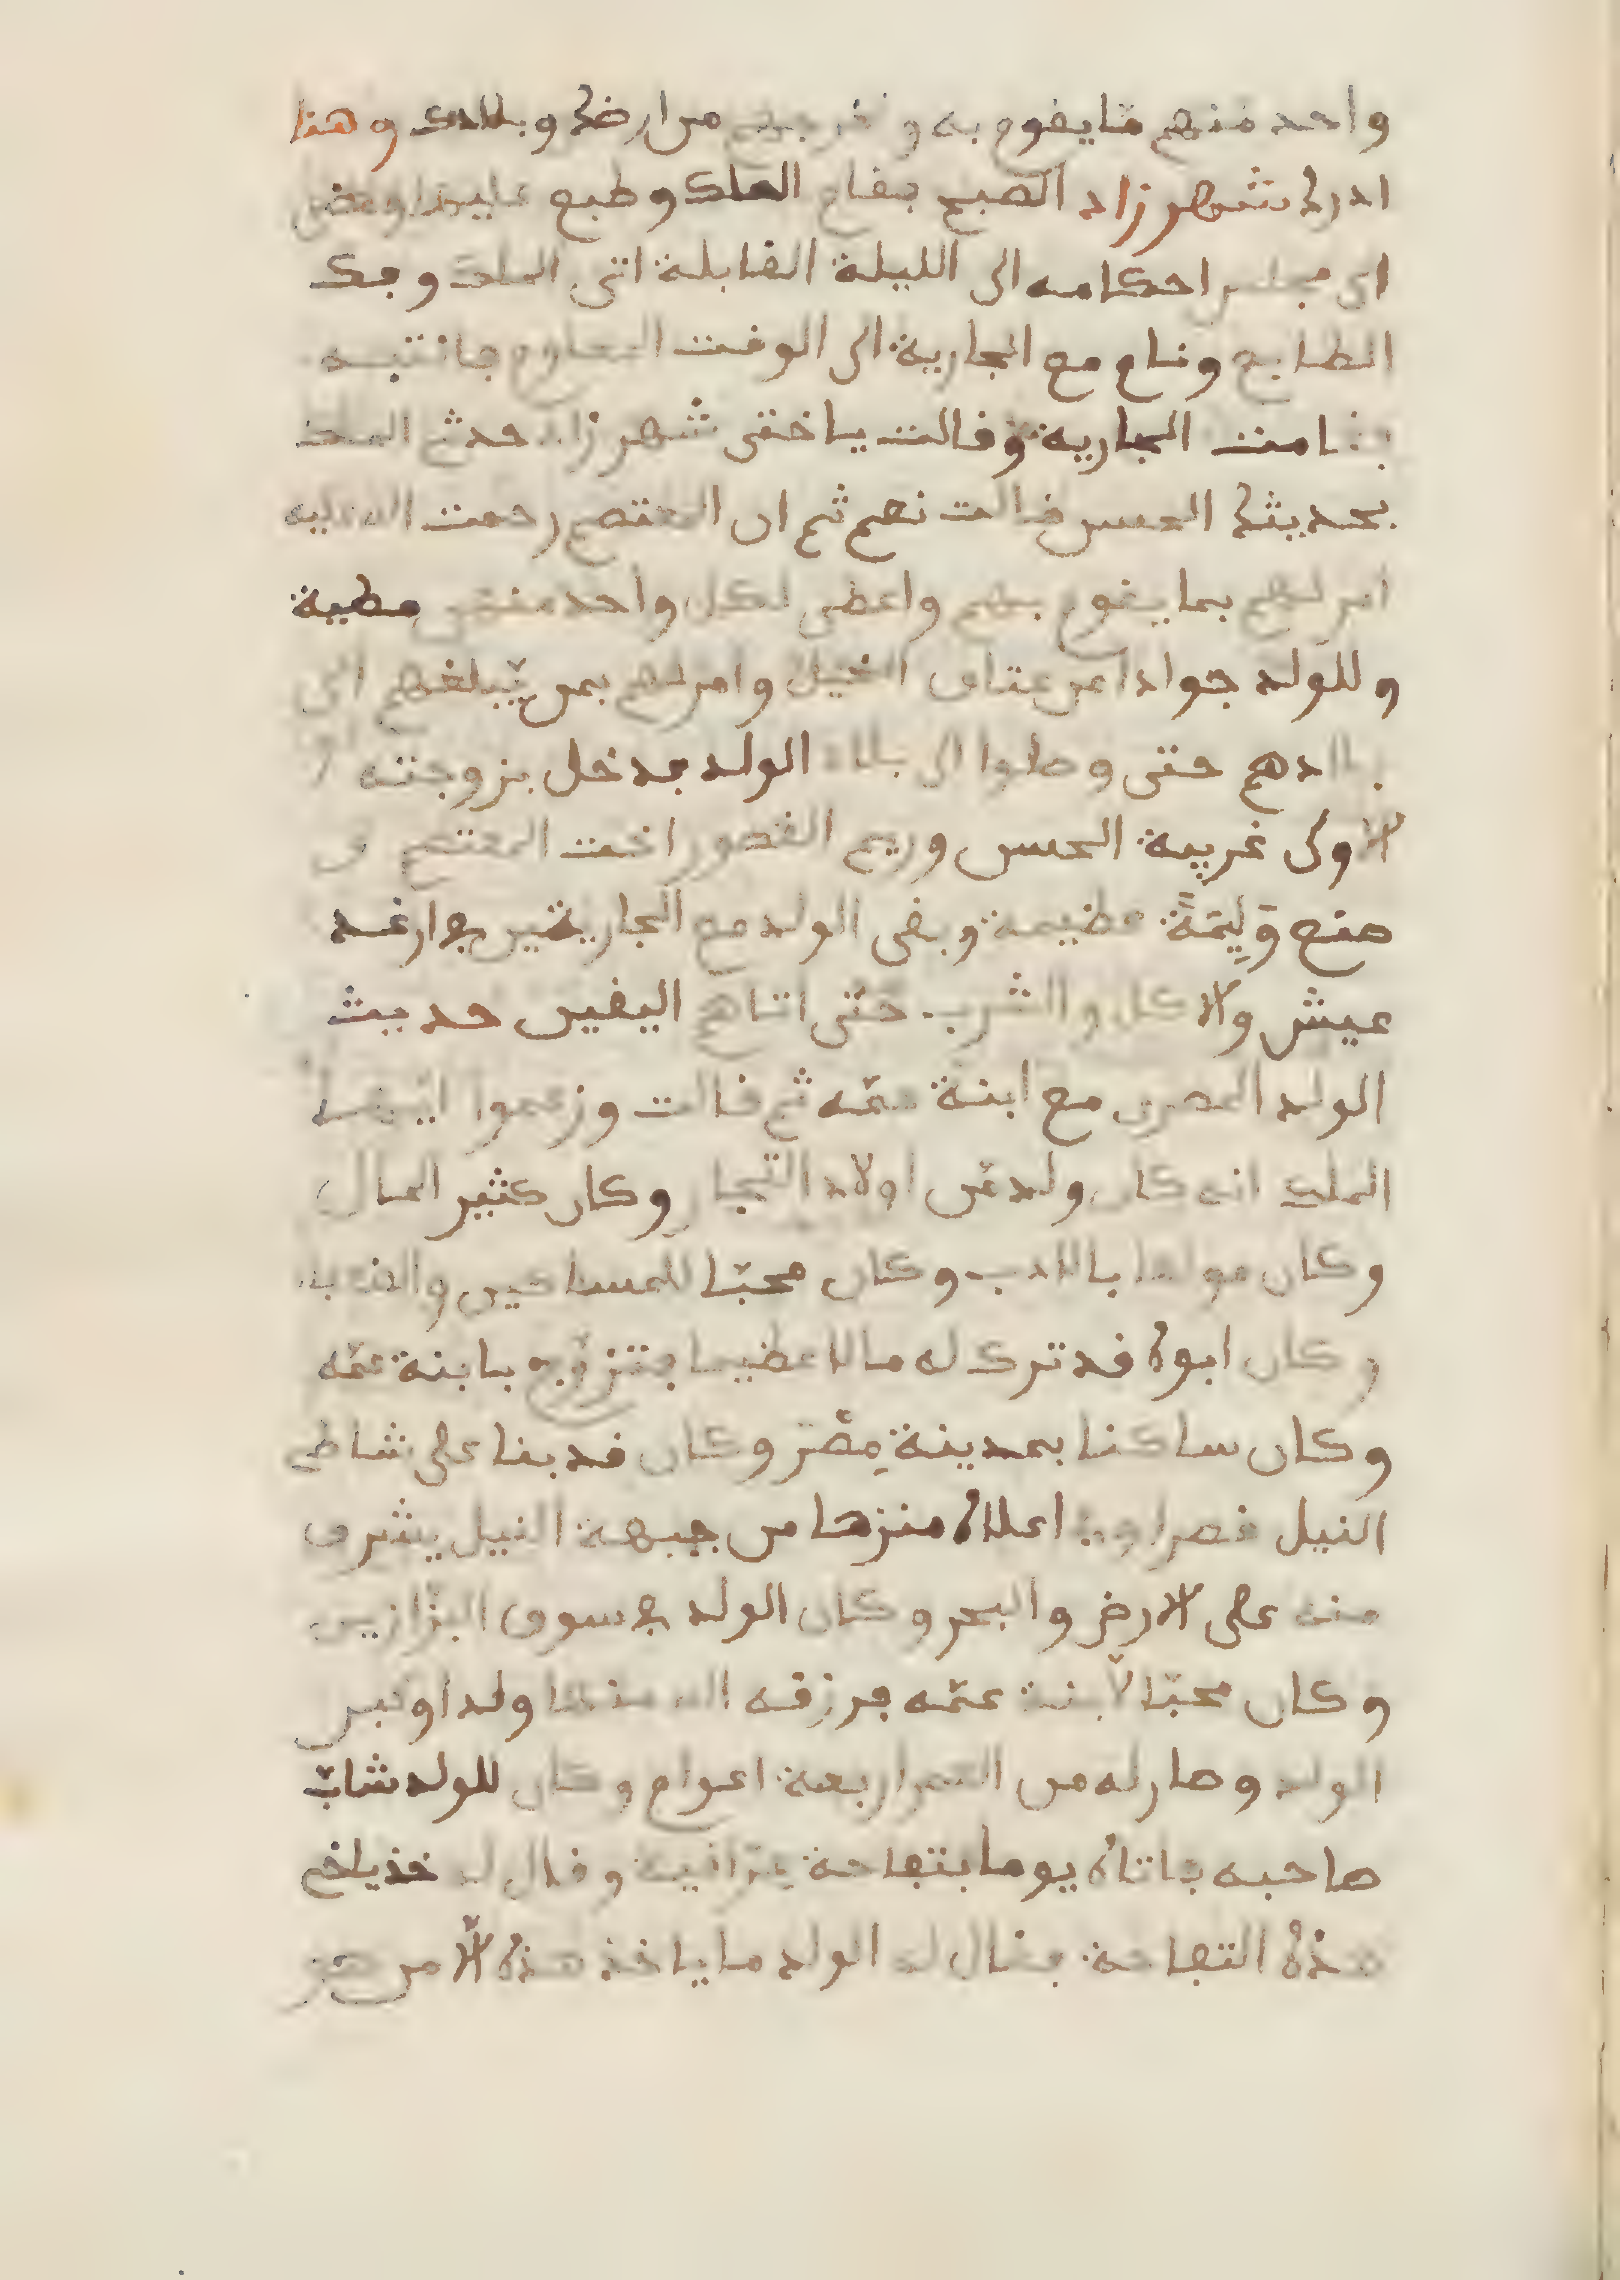 واحد منهم ما يقوم به و نخرجهم من ارضك وبلادك وهنا
ادرك شهرزاد الصبح فقام الملك وطبع عليها ومضى
الى مجلس احكامه الى الليلة القابلة اتى الملك وفك
الطابع ونام مع الجارية الى الوقت المعلوم فانتبه
فقامت الجارية وقالت يا ختى شهرزاد حدث الملك
بحديثك الحسن قالت نعم ثم ان المعتصم رحمت الله عليه
امر لهم بما يقوم بهم واعطى لكل واحد منهم مطية
وللولد جوادا من عتاق الخيل وامر لهم بمن يبلغهم الى
بلادهم حتى وصلوا الى بلاد الولد فدخل بزوجته
الاولى غريبة الحسن وريم القصور اخت المعتصم
صنع وَلِيمَةً عظيمة وبقى الولد مع الجاريتين في ارغد
عيش والاكل والشرب حتى اتاهم اليقين حديث
الولد المصرى مع ابنة عمّه ثم قالت وزعموا ايها
الملك انه كان ولد من اولاد التجار وكان كثير المال
وكان مولعا بالادب وكان محبّا للمساكين
وكان ابوه قد ترك له مالا عظيما فتزوّج بابنة عمّه
وكان ساكنا بمدينة مِصْرَ وكان قد بنا على شاطى
النيل قصرا وفى اعلاه منزها من جهة النيل يشرف
منه على الارض والبحر وكان الولد في سوق البزّازين
وكان محبّا لابنة عمّه فرزقه الله منها ولدا وكبر
الولد وصار له من العمر اربعة اعوام وكان للولد شابّ
صاحبه فاتاه يوما بتفاحة عراقية وقال له خذ يا خى
هذه التفاحة فقال له الولد ما ياخذ هذه الّا من هو